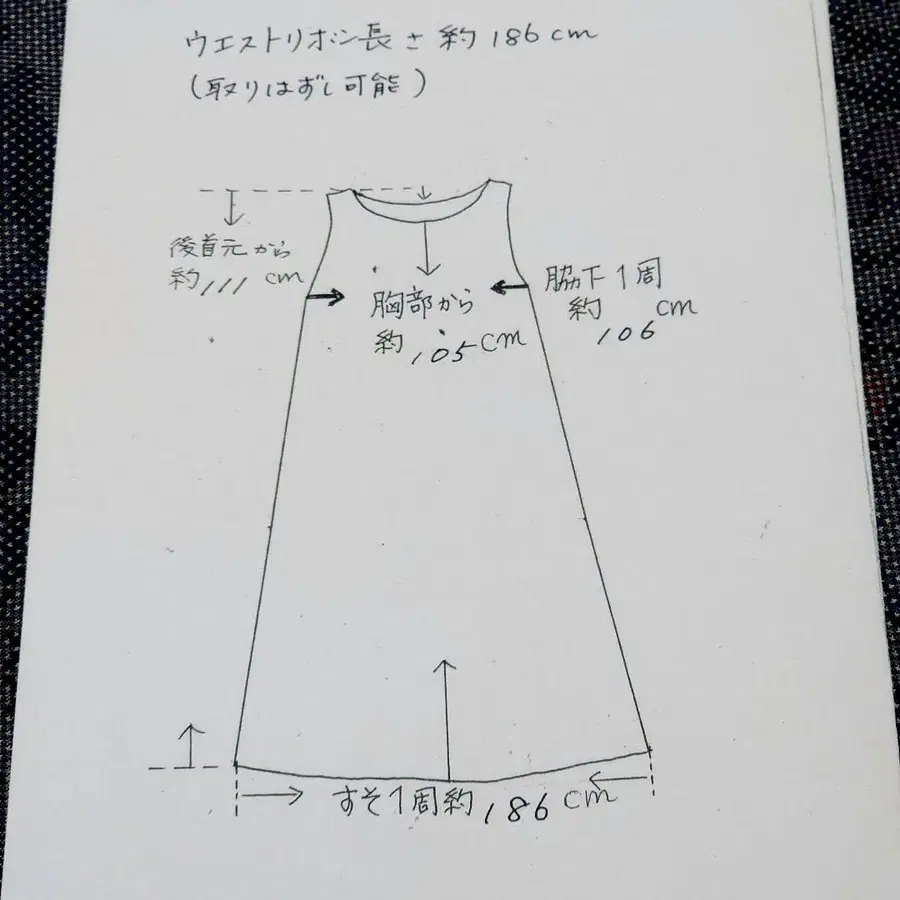 ウエストリボン長さ約186cm
(取りはずし可能)
後首元から
約111cm
胸部から
約105cm
脇下1周
約106cm
すそ1周約186cm